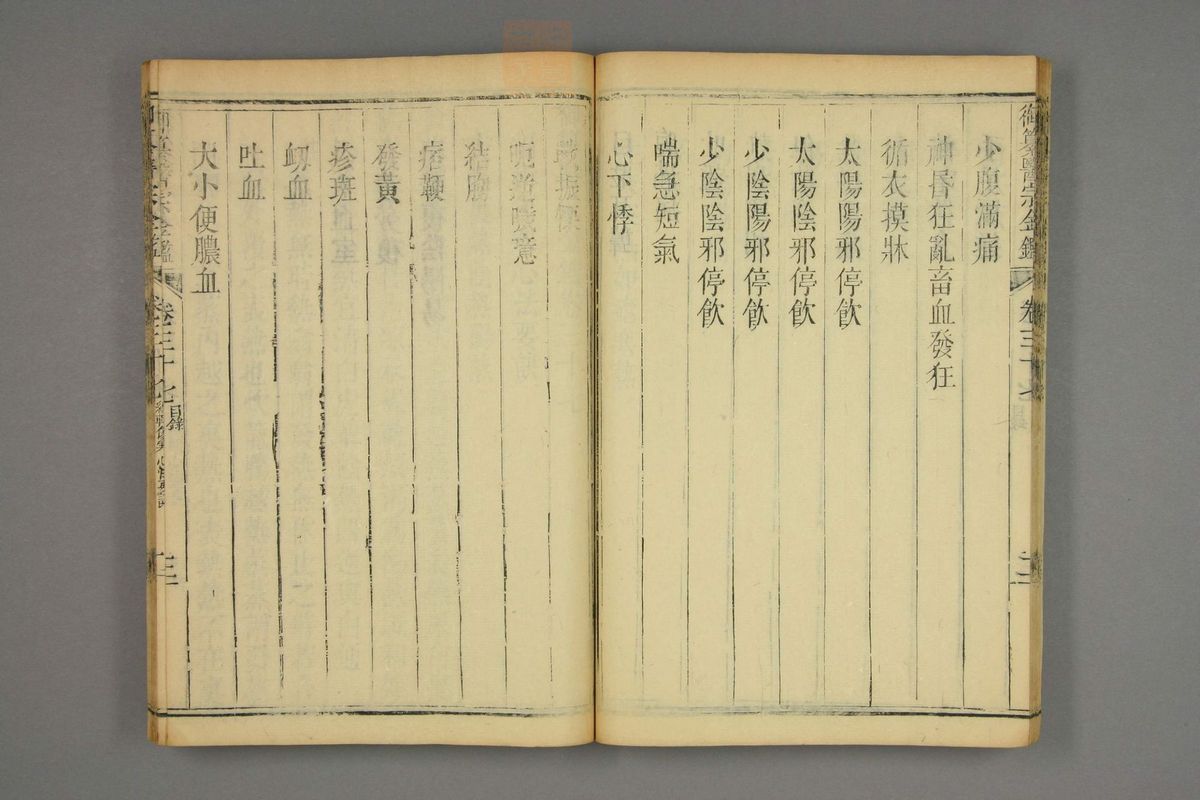 御纂醫宗金鑑 卷三十七
少腹滿痛
神昏狂亂畜血發狂
循衣摸牀
太陽陽邪停飲
太陽陰邪停飲
少陰陽邪停飲
少陰陰邪停飲
喘急短氣
心下悸
戰振慄
呃逆噦意
結胸
痞鞕
發黃
疹斑
衂血
吐血
大小便膿血
卷三十七 目錄 三